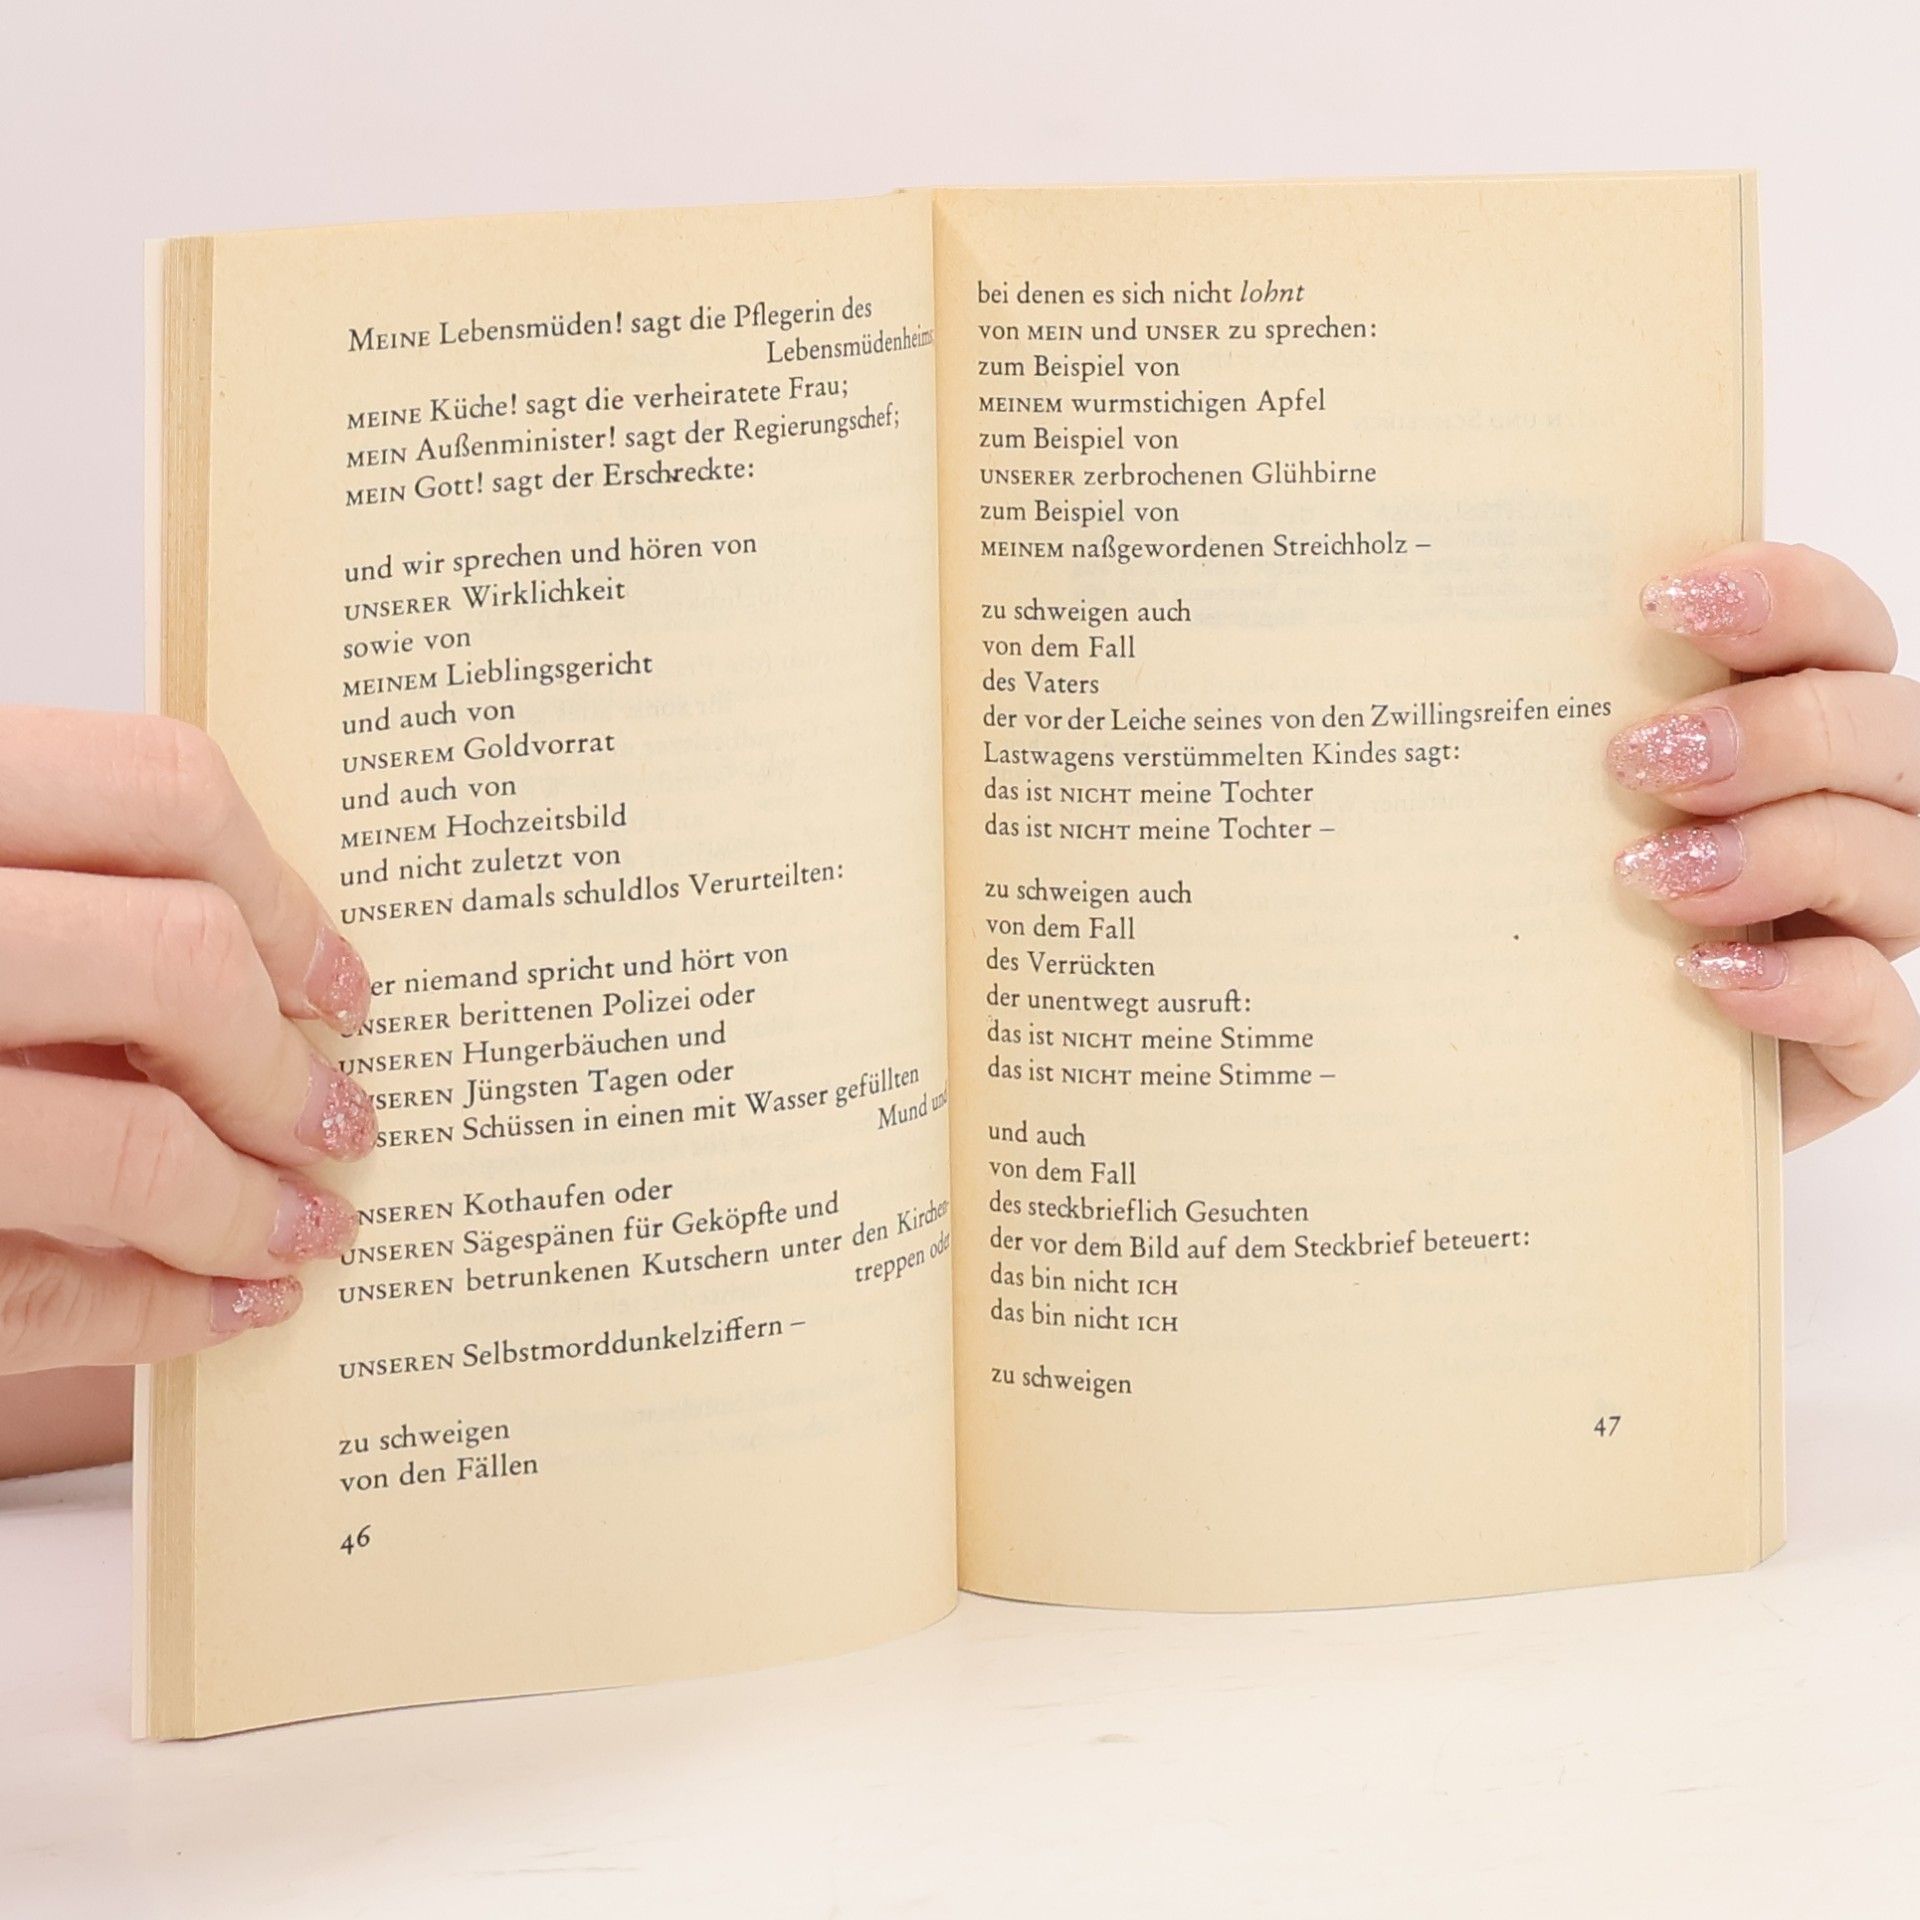 MEINE Lebensmüden! sagt die Pflegerin des
Lebensmüdenheims;
MEINE Küche! sagt die verheiratete Frau;
MEIN Außenminister! sagt der Regierungschef;
MEIN Gott! sagt der Erschreckte:
und wir sprechen und hören von
UNSERER Wirklichkeit
sowie von
MEINEM Lieblingsgericht
und auch von
UNSEREM Goldvorrat
und auch von
MEINEM Hochzeitsbild
und nicht zuletzt von
UNSEREN damals schuldlos Verurteilten:
er niemand spricht und hört von
UNSERER berittenen Polizei oder
UNSEREN Hungerbäuchen und
UNSEREN Jüngsten Tagen oder
UNSEREN Schüssen in einen mit Wasser gefüllten
Mund und
UNSEREN Kothaufen oder
UNSEREN Sägespänen für Geköpfte und
UNSEREN betrunkenen Kutschern unter den Kirchen-
treppen oder
UNSEREN Selbstmorddunkelziffern –
zu schweigen
von den Fällen
46
bei denen es sich nicht lohnt
von MEIN und UNSER zu sprechen:
zum Beispiel von
MEINEM wurmstichigen Apfel
zum Beispiel von
UNSERER zerbrochenen Glühbirne
zum Beispiel von
MEINEM naßgewordenen Streichholz –
zu schweigen auch
von dem Fall
des Vaters
der vor der Leiche seines von den Zwillingsreifen eines
Lastwagens verstümmelten Kindes sagt:
das ist NICHT meine Tochter
das ist NICHT meine Tochter –
zu schweigen auch
von dem Fall
des Verrückten
der unentwegt ausruft:
das ist NICHT meine Stimme
das ist NICHT meine Stimme –
und auch
von dem Fall
des steckbrieflich Gesuchten
der vor dem Bild auf dem Steckbrief beteuert:
das bin nicht ICH
das bin nicht ICH
zu schweigen
47